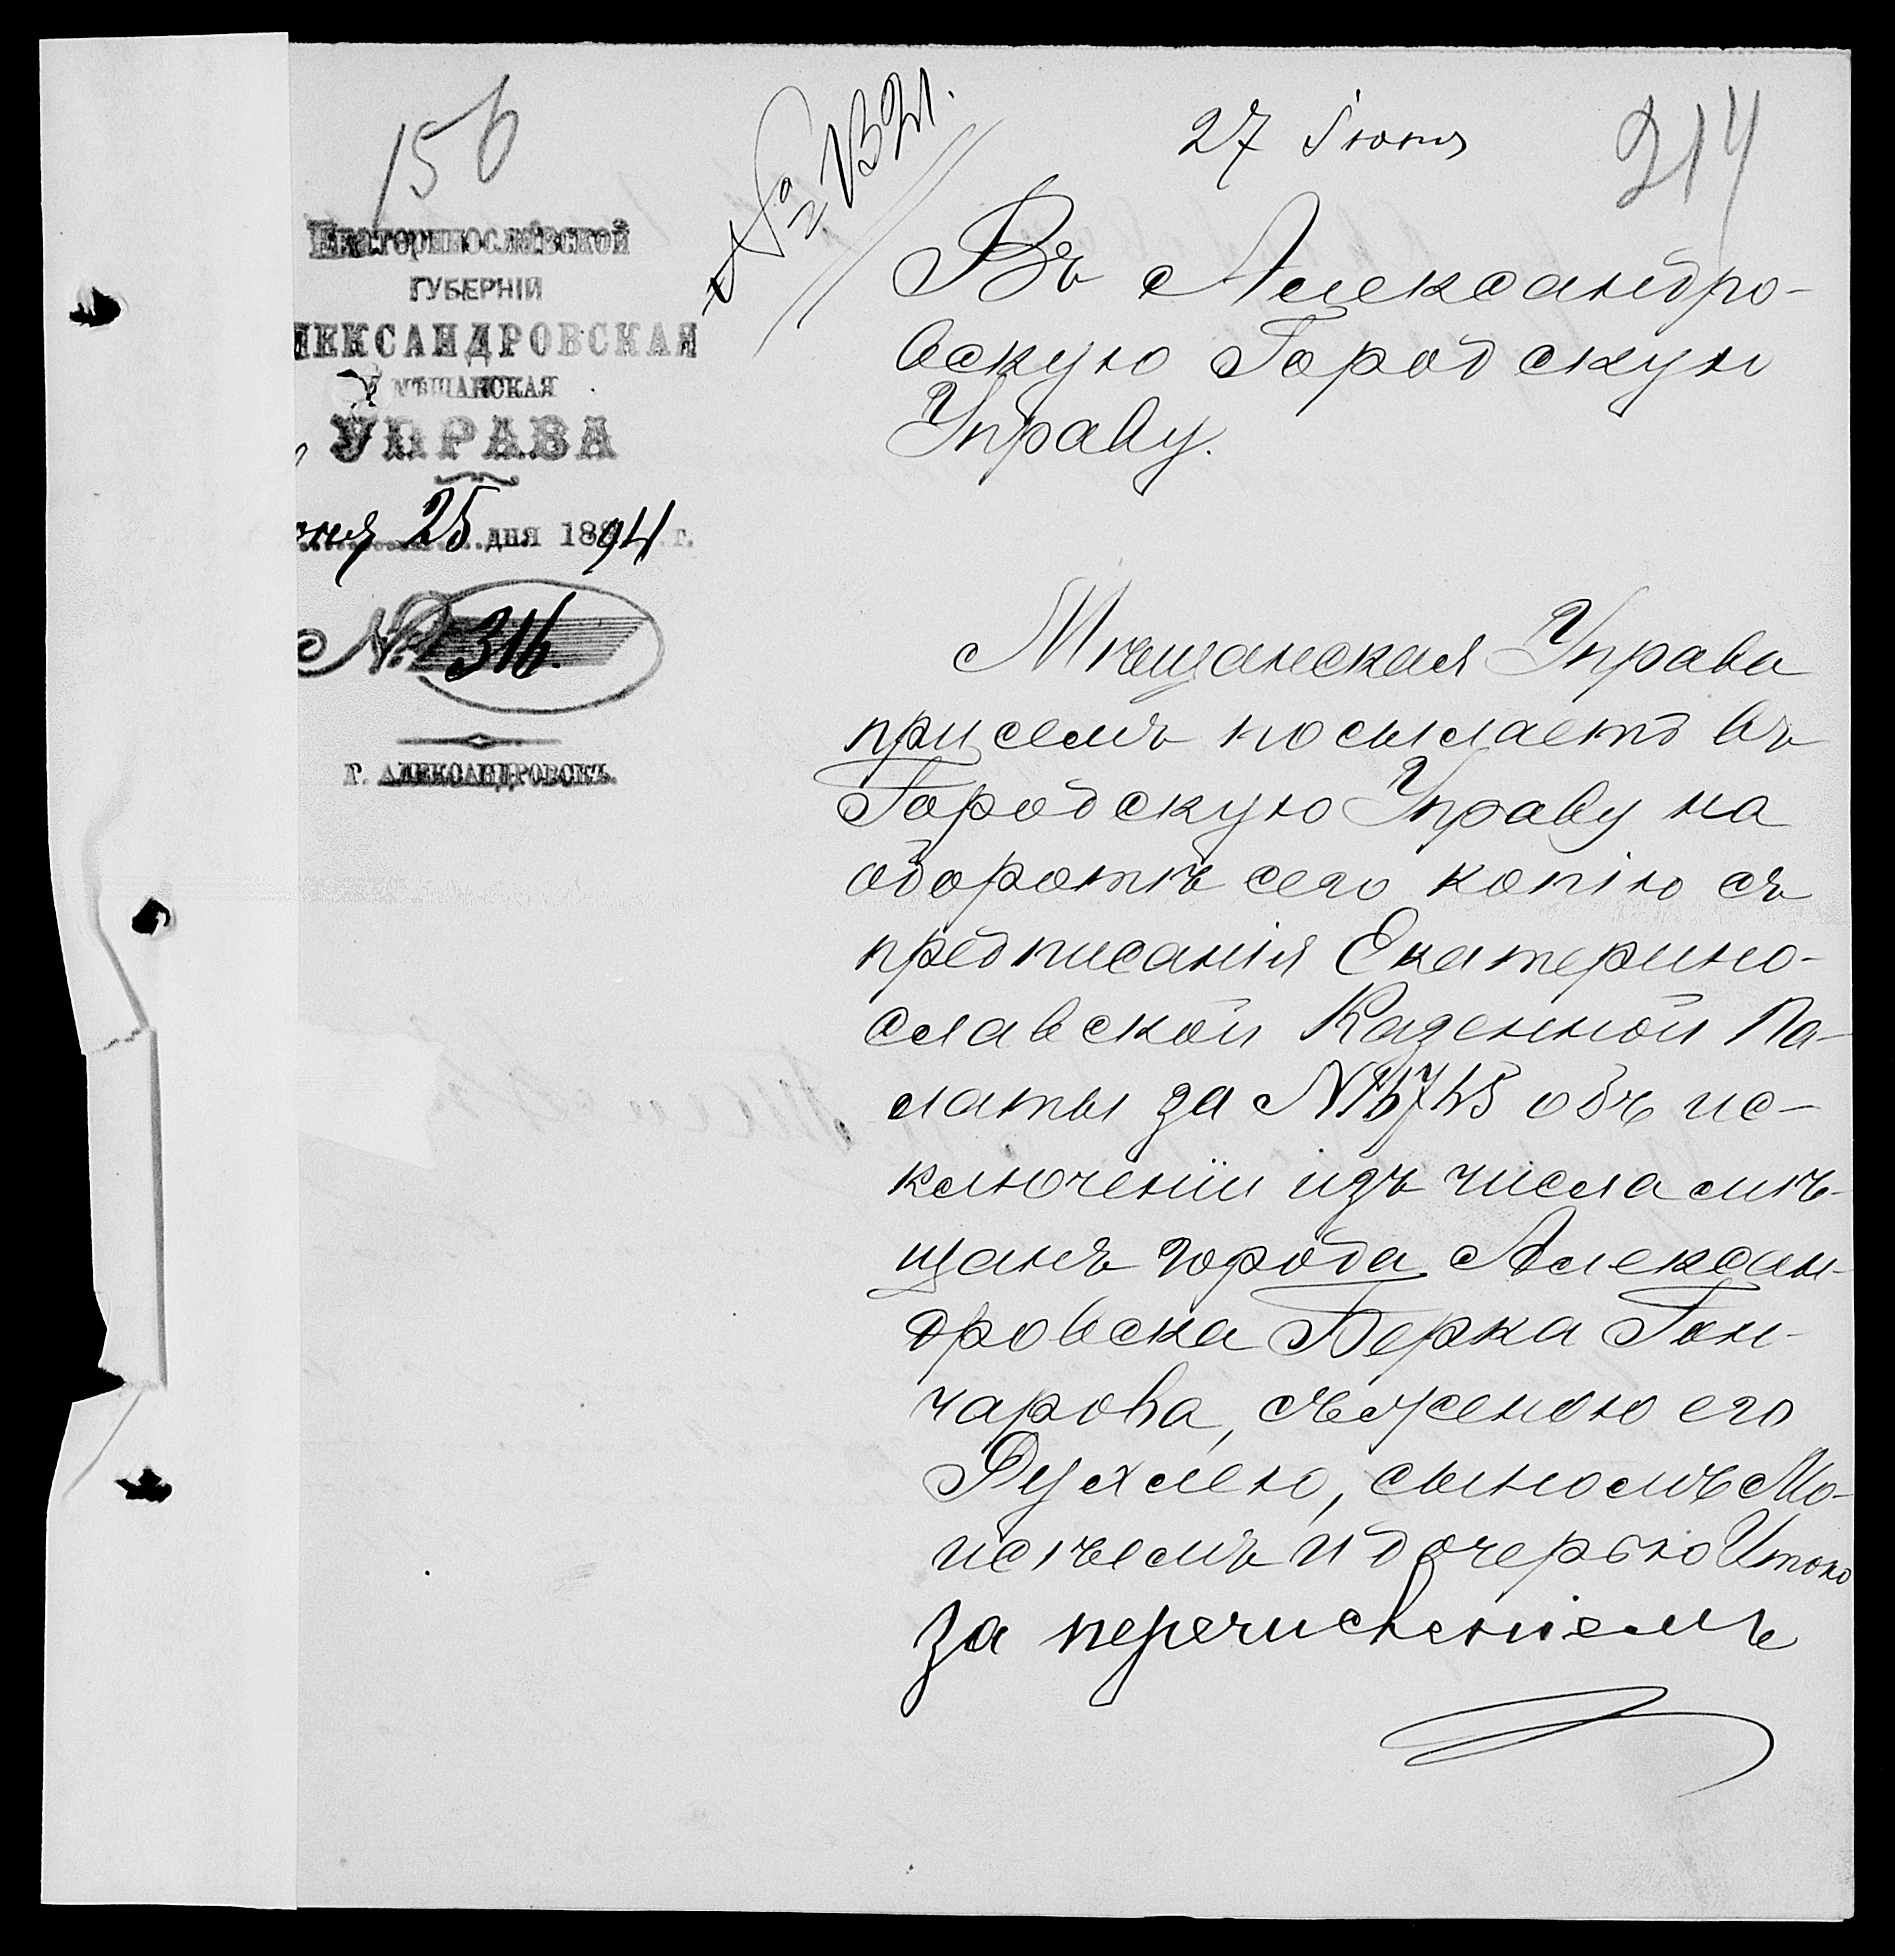 156
27 Іюня
214
Екатеринославской
ГУБЕРНІИ
ЛЕКСАНДРОВСКАЯ
МѢЩАНСКАЯ
УПРАВА
25 дня 1894 г.
№ 316.
г. АЛЕКСАНДРОВСКЪ.
Въ Александро-
вскую Городскую
Управу.
Мѣщанская Управа
при семъ посылаетъ въ
Городскую Управу на
оборотѣ сего копію съ
предписанія Екатерино-
славской Казенной Па-
латы за № объ ис-
ключеніи изъ числа мѣ-
щанъ города Алексан-
дровска Берка Гон-
чарова, съ женою его
Рухлею, сыномъ Мо-
исѣемъ и дочерью Итою
за перечисленіемъ